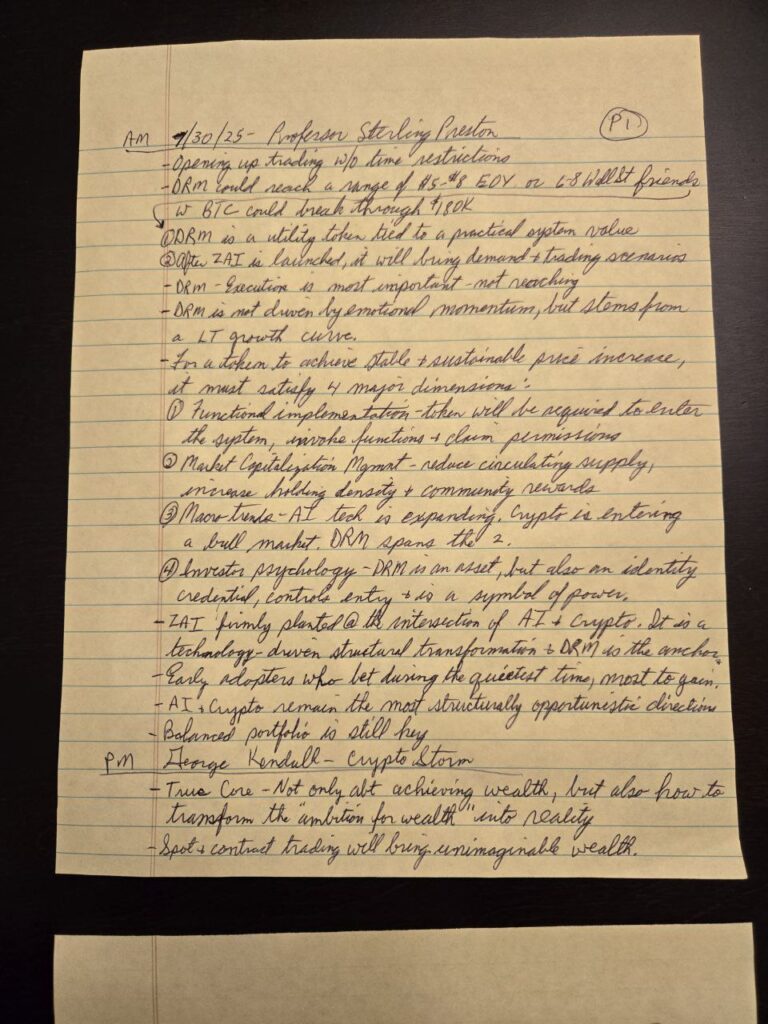 P1
AM 7/30/25 - Professor Sterling Preston
- Opening up trading w/o time restrictions
- DRM could reach a range of $5-$8 EOY or 6-8 Wall St friends
w BTC could break through $180K
① DRM is a utility token tied to a practical system value
② After ZAI is launched, it will bring demand + trading scenarios
- DRM - Execution is most important - not reaching
- DRM is not driven by emotional momentum, but stems from
a LT growth curve.
- For a token to achieve stable + sustainable price increase,
it must satisfy 4 major dimensions:
① Functional implementation - token will be required to enter
the system, invoke functions + claim permissions
② Market Capitalization Mgmnt - reduce circulating supply,
increase holding density + community rewards
③ Macro trends - AI tech is expanding. Crypto is entering
a bull market. DRM spans the 2.
④ Investor psychology - DRM is an asset, but also an identity
credential, controls entry + is a symbol of power.
- ZAI firmly planted @ the intersection of AI + Crypto. It is a
technology-driven structural transformation + DRM is the "anchor"
- Early adopters who bet during the quietest time, most to gain.
- AI + Crypto remain the most structurally opportunistic directions
- Balanced portfolio is still key
PM George Kendall - Crypto Storm
- True Core - Not only abt achieving wealth, but also how to
transform the "ambition for wealth" into reality
- Spot + contract trading will bring unimaginable wealth.